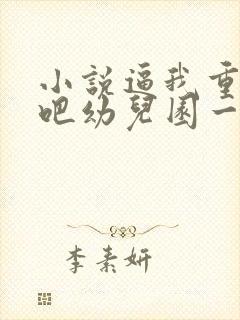 小說逼我重
吧幼兒園一
李素妍